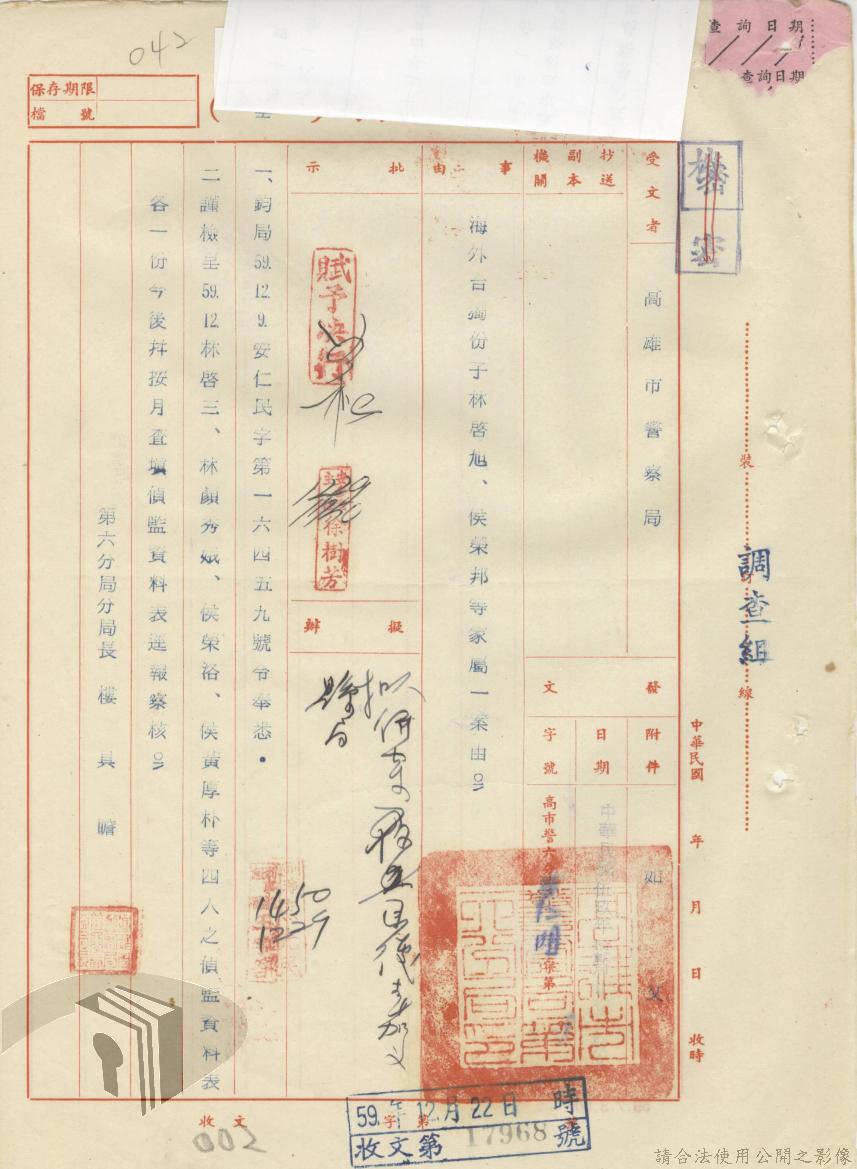 042
查詢日期
查詢日期
保存期限
檔號
機密
調查組
裝
線
中華民國 年 月 日 收時
受文者
高雄市警察局
抄送
副本
機關
事由
海外台獨份子林啓旭、侯榮邦等家屬一案由
發文
附件
如文
日期
中華民國伍玖年
字號
高市警六
第
批示
徐樹芳
擬辦
1450
1229
一、鈞局59.12.9.安仁民字第一六四五九號令奉悉。
二謹檢呈59.12.林啓三、林顏秀娥、侯榮洛、侯黃厚朴等四人之偵監資料表
各一份今後幷按月查填偵監資料表逕報察核
第六分局分局長 樓具瞻
收文 字第 號
59.年12.月22日 時
收文第17968號
002
請合法使用公開之影像